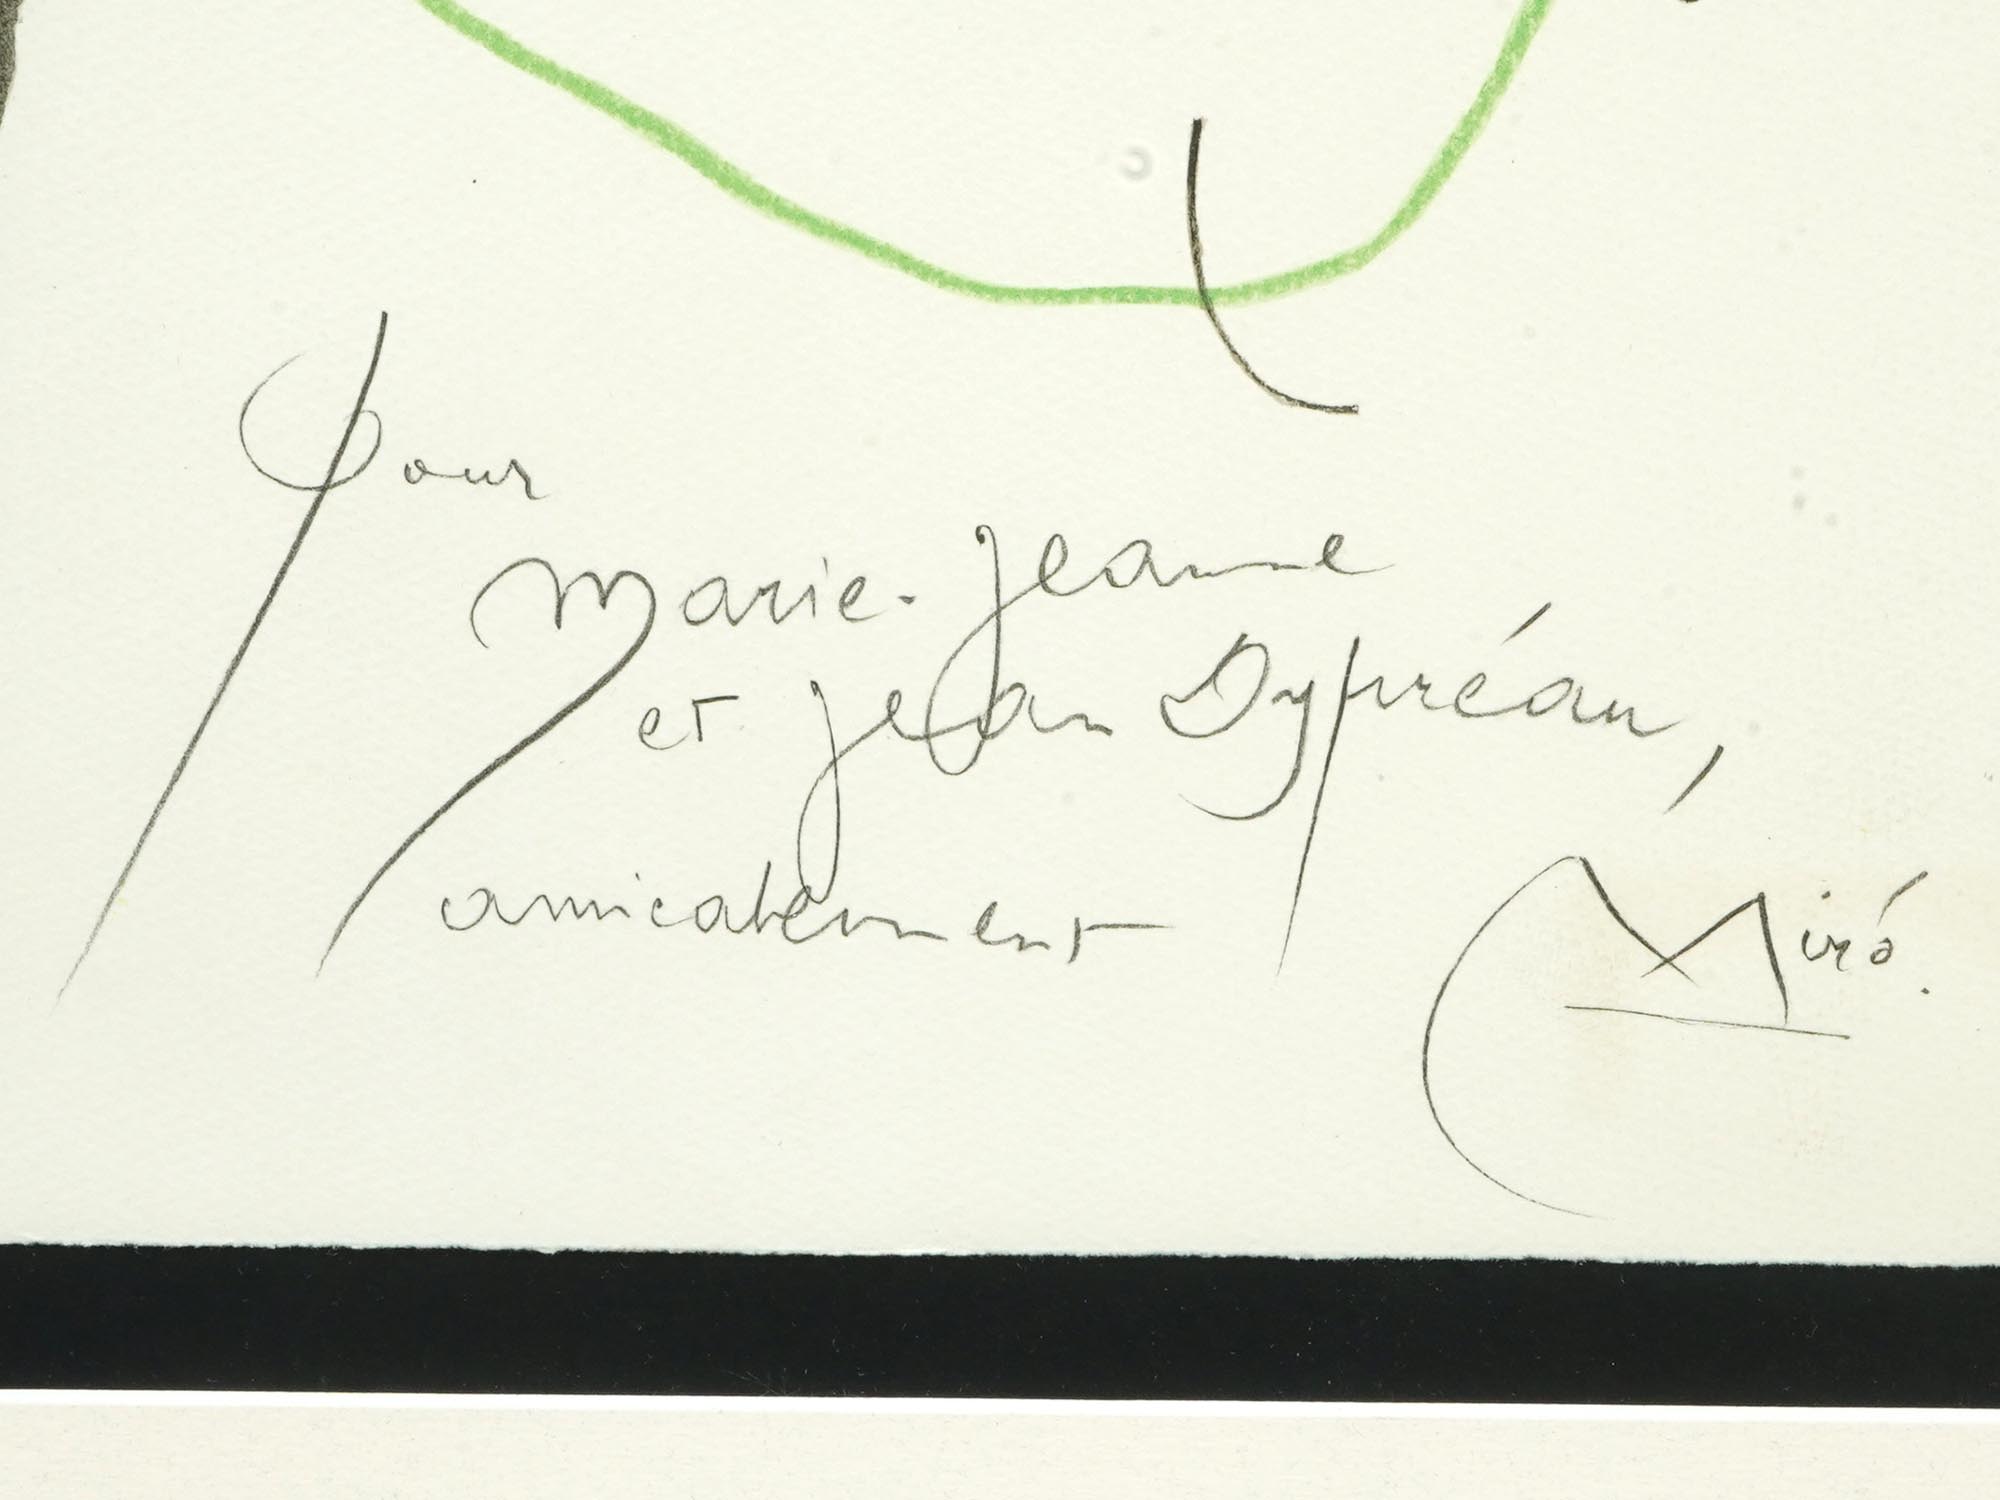 Pour
Marie-Jeanne
et Jean Dypréau,
amicalement
Miró.